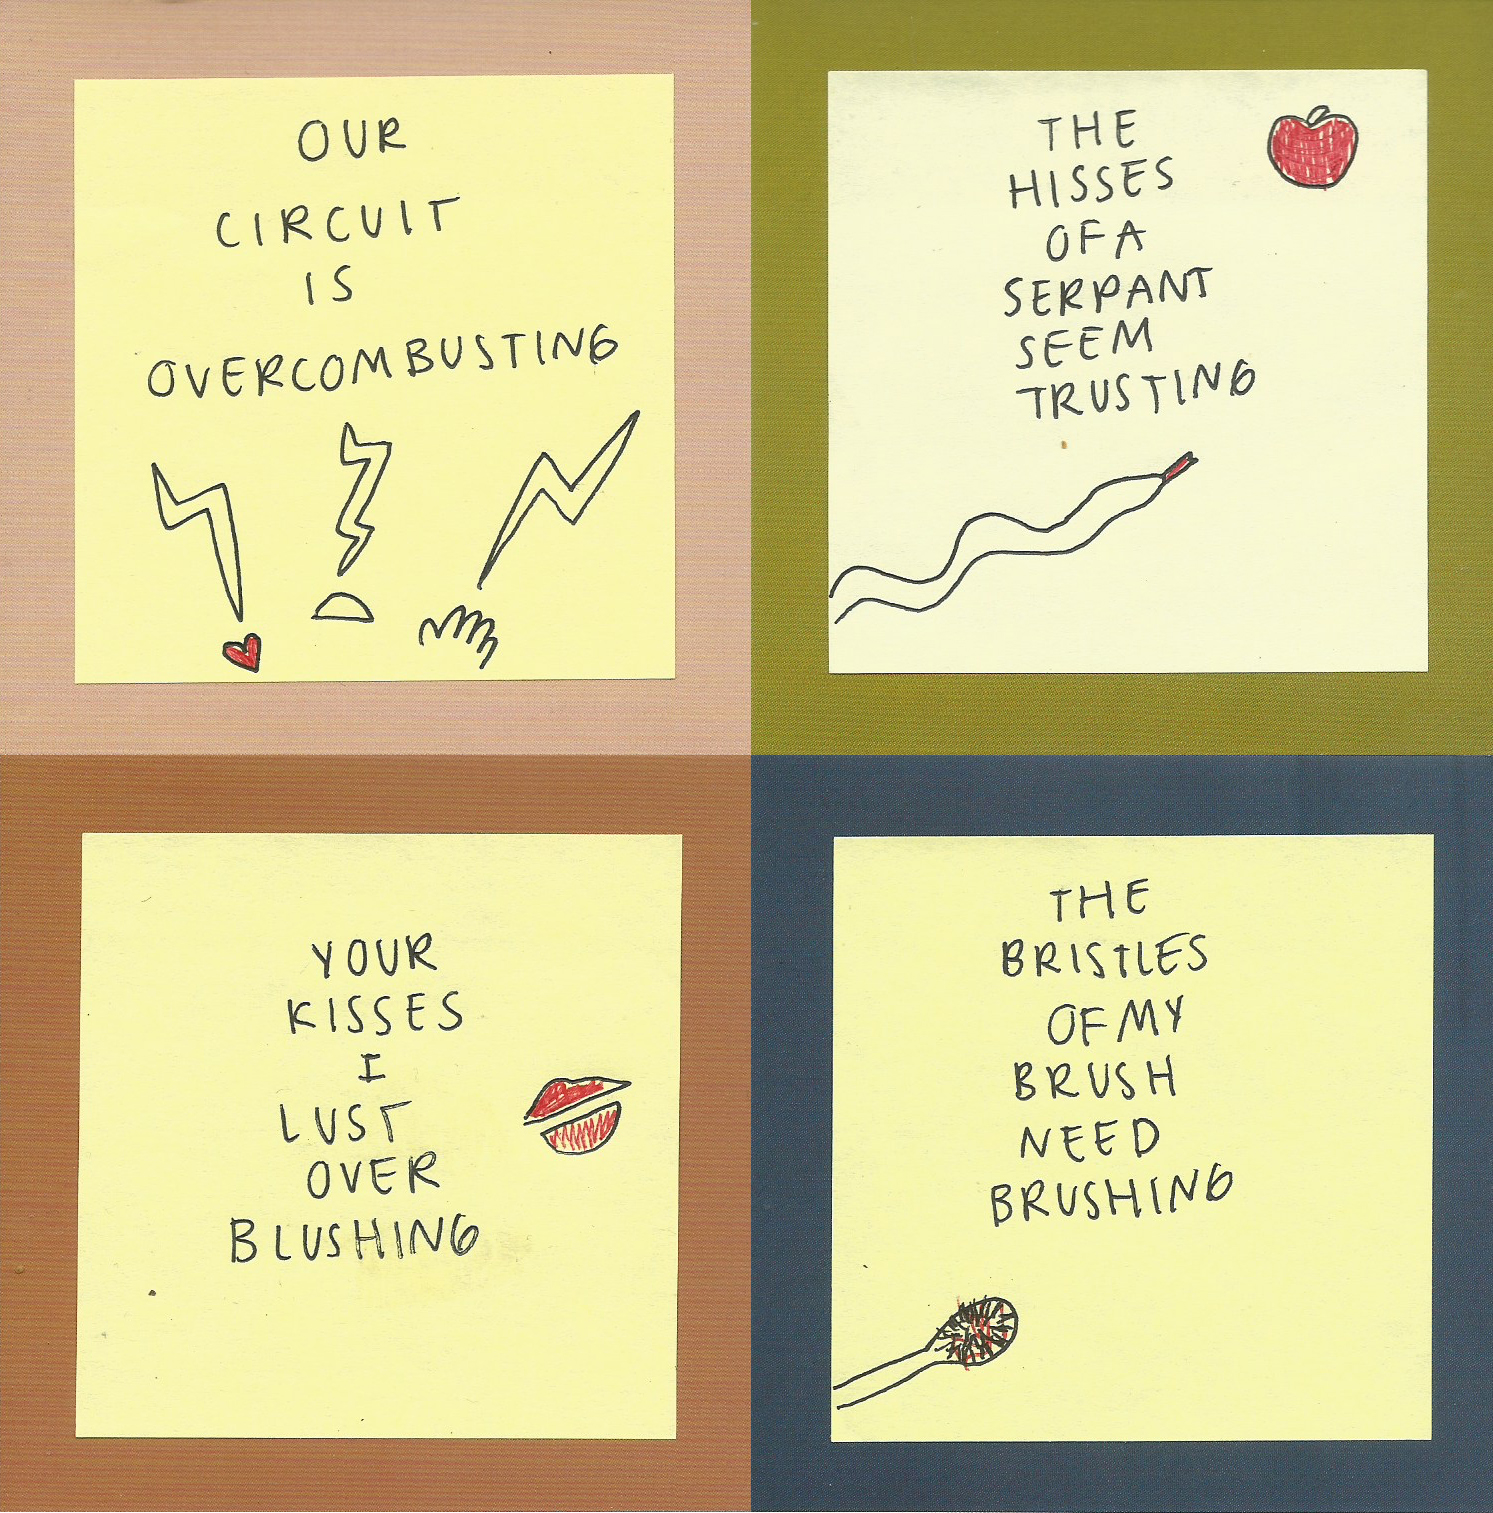 OUR
CIRCUIT
IS
OVERCOMBUSTING
THE
HISSES
OF A
SERPANT
SEEM
TRUSTING
YOUR
KISSES
I
LUST
OVER
BLUSHING
THE
BRISTLES
OF MY
BRUSH
NEED
BRUSHING